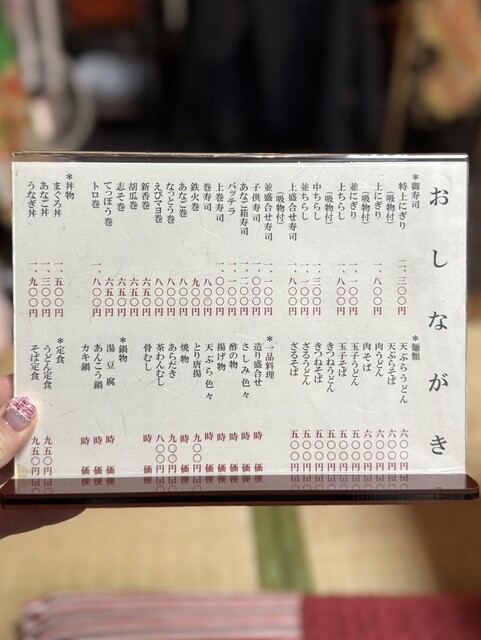 おしながき
＊御寿司
特上にぎり 二、三〇〇円
(吸物付)
上にぎり 一、八〇〇円
(吸物付)
並にぎり 一、一〇〇円
上ちらし 一、八〇〇円
(吸物付)
中ちらし 一、三〇〇円
並ちらし 一、一〇〇円
上盛合せ寿司 一、八〇〇円
(吸物付)
並盛合せ寿司 一、一〇〇円
子供寿司 一、〇〇〇円
あなご箱寿司 一、一〇〇円
バッテラ 一、一〇〇円
上巻寿司 一、〇〇〇円
巻寿司 八〇〇円
鉄火巻 九〇〇円
あなご巻 八〇〇円
なっとう巻 八〇〇円
えびマヨ巻 八〇〇円
新香巻 六五〇円
胡瓜巻 六五〇円
志そ巻 六五〇円
てっぽう巻 六五〇円
トロ巻 一、八〇〇円
＊丼物
まぐろ丼 一、五〇〇円
あなご丼 一、三〇〇円
うなぎ丼 一、九〇〇円
＊麺類
天ぷらうどん 六〇〇円
天ぷらそば 六〇〇円
肉うどん 六〇〇円
肉そば 六〇〇円
玉子うどん 五〇〇円
玉子そば 五〇〇円
きつねうどん 五〇〇円
きつねそば 五〇〇円
ざるうどん 五〇〇円
ざるそば 五〇〇円
＊一品料理
造り盛合せ 時価
さしみ色々 時価
酢の物 時価
揚げ物 時価
天ぷら色々 時価
とり唐揚 九〇〇円
焼物 時価
あらだき 九〇〇円
茶わんむし 八〇〇円
骨むし 時価
＊鍋物
湯豆腐 時価
あんこう鍋 時価
カキ鍋 時価
＊定食
うどん定食 九五〇円
そば定食 九五〇円